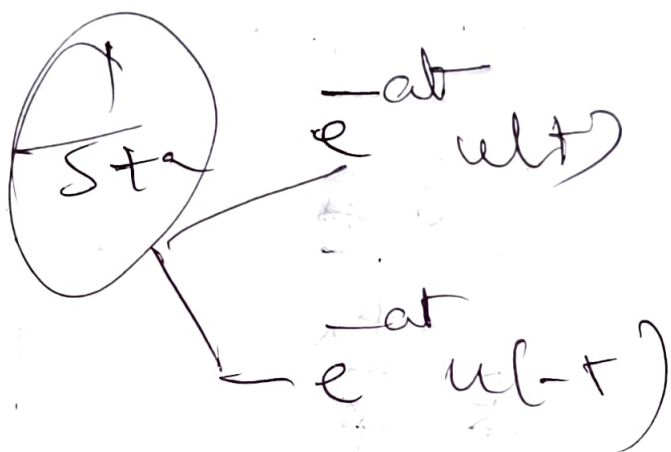 1/(s+a)
e^{-at} u(t)
-e^{-at} u(-t)